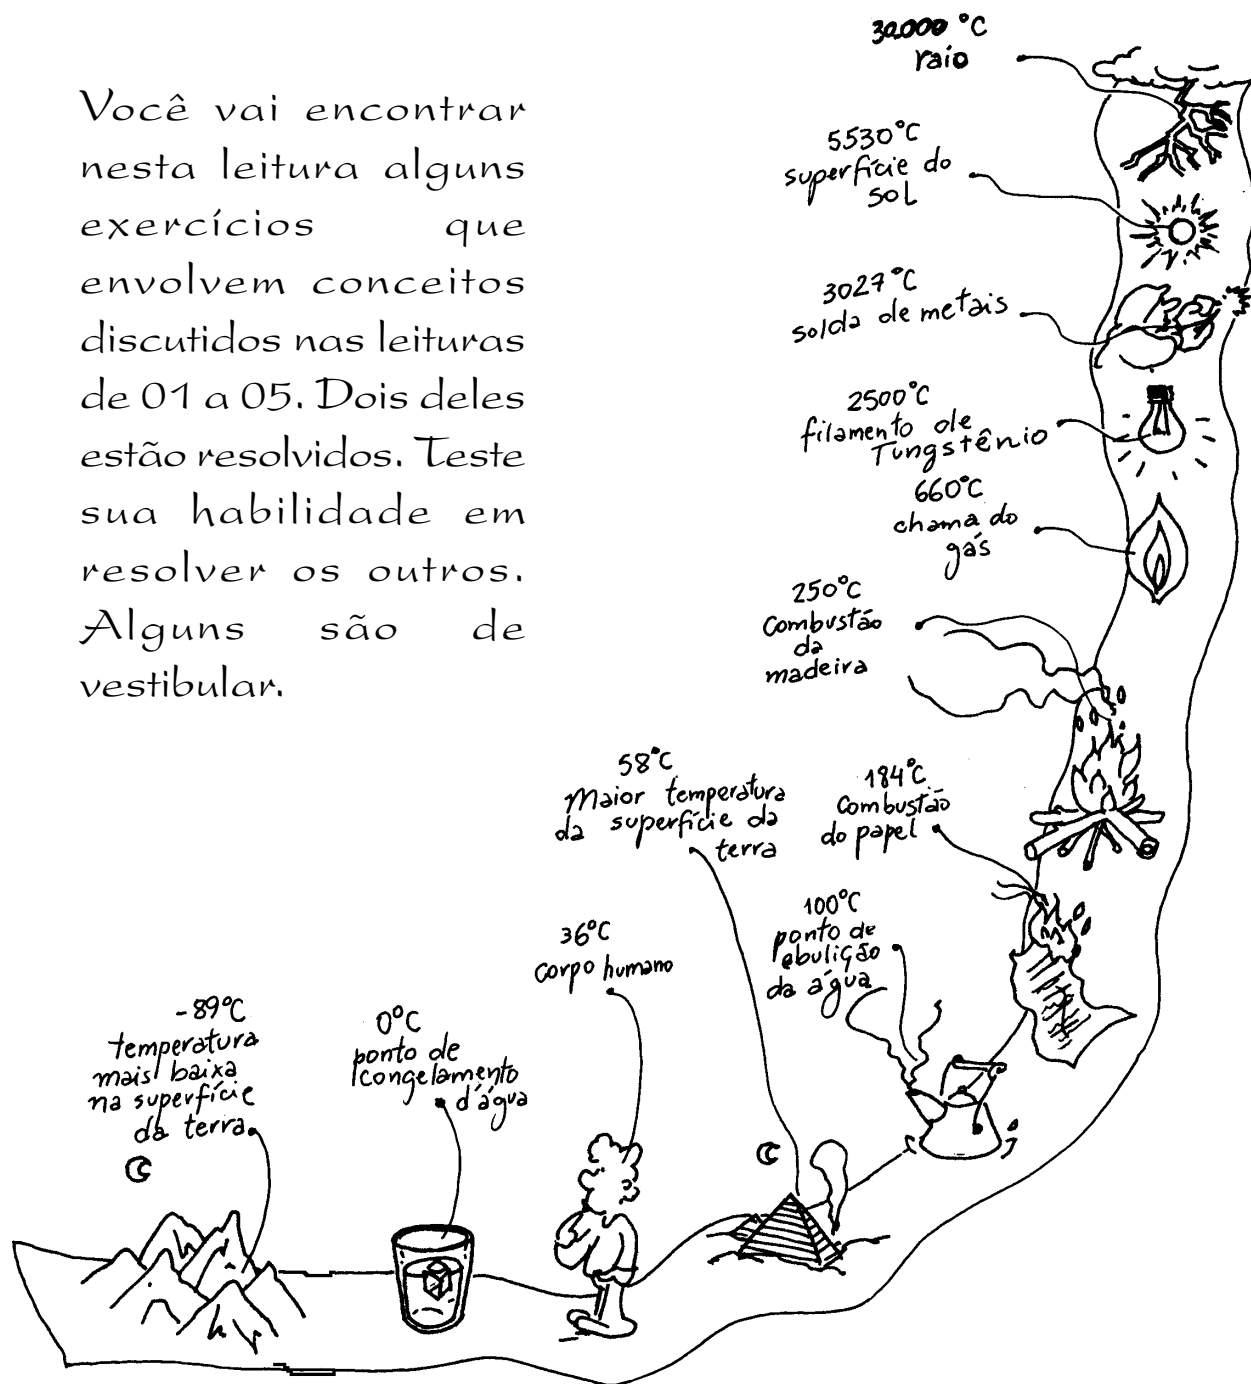 Você vai encontrar
nesta leitura alguns
exercícios que
envolvem conceitos
discutidos nas leituras
de 01 a 05. Dois deles
estão resolvidos. Teste
sua habilidade em
resolver os outros.
Alguns são de
vestibular.
30.000 °C
raio
5530°C
superfície do
sol
3027°C
solda de metais
2500°C
filamento de
Tungstênio
660°C
chama do
gás
250°C
Combustão
da
madeira
184°C
Combustão
do papel
100°C
ponto de
ebulição
da água
58°C
Maior temperatura
da superfície da
terra
36°C
corpo humano
0°C
ponto de
congelamento
d'água
-89°C
temperatura
mais baixa
na superfície
da terra